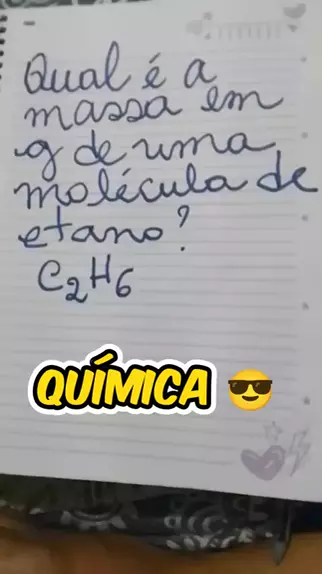 Qual é a
massa em
g de uma
molécula de
etano?
C₂H₆
QUÍMICA 😎